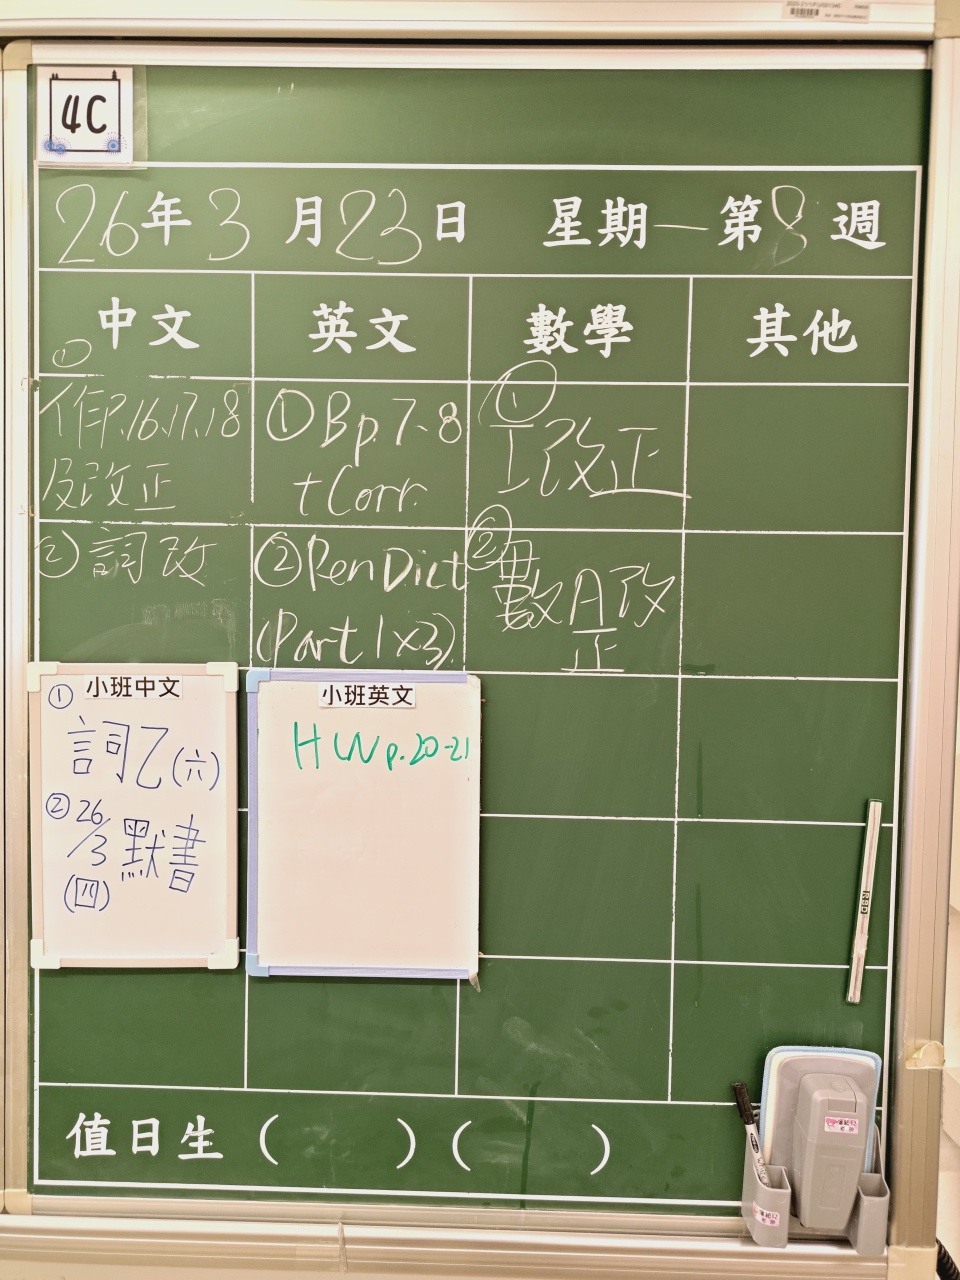 4C
26年3月23日 星期一 第8週
中文 英文 數學 其他
①
作P.16.17.18
及改正
② 詞改
① Bp.7-8
+Corr.
② Pen Dict
(Part 1 x3)
①
工改正
②
數A改
正
小班中文
①
詞乙(六)
② 26/3 默書
(四)
小班英文
HW p.20-21
值日生 ( ) ( )